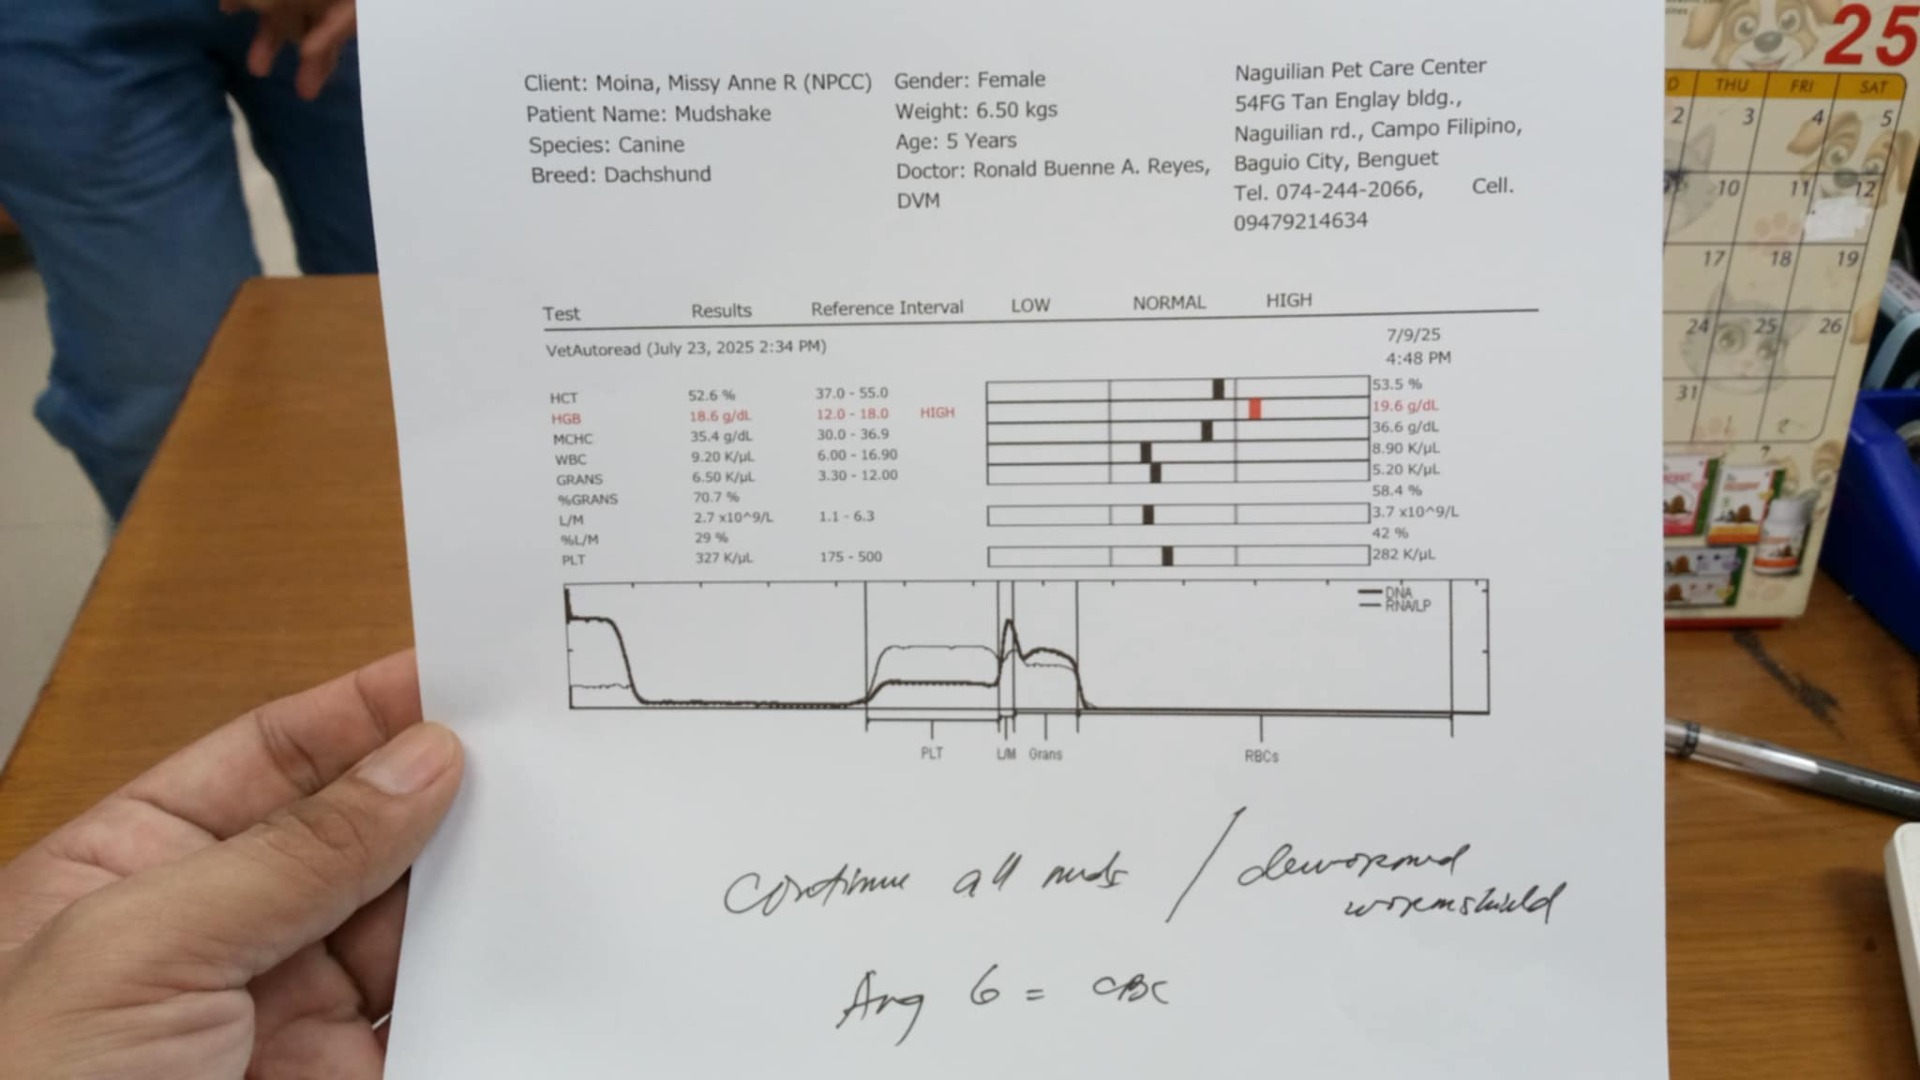 Client: Moina, Missy Anne R (NPCC)
Patient Name: Mudshake
Species: Canine
Breed: Dachshund
Gender: Female
Weight: 6.50 kgs
Age: 5 Years
Doctor: Ronald Buenne A. Reyes,
DVM
Naguilian Pet Care Center
54FG Tan Englay bldg.,
Naguilian rd., Campo Filipino,
Baguio City, Benguet
Tel. 074-244-2066, Cell.
09479214634
Test Results Reference Interval LOW NORMAL HIGH
VetAutoread (July 23, 2025 2:34 PM) 7/9/25
4:48 PM
HCT 52.6 % 37.0 - 55.0 53.5 %
HGB 18.6 g/dL 12.0 - 18.0 HIGH 19.6 g/dL
MCHC 35.4 g/dL 30.0 - 36.9 36.6 g/dL
WBC 9.20 K/µL 6.00 - 16.90 8.90 K/µL
GRANS 6.50 K/µL 3.30 - 12.00 5.20 K/µL
%GRANS 70.7 % 58.4 %
L/M 2.7 x10^9/L 1.1 - 6.3 3.7 x10^9/L
%L/M 29 % 42 %
PLT 327 K/µL 175 - 500 282 K/µL
DNA
RNA/LP
PLT L/M Grans RBCs
Continue all meds / dewormed
wormshield
Aug 6 = CBC
25
THU FRI SAT
2 3 4 5
10 11 12
17 18 19
24 25 26
31